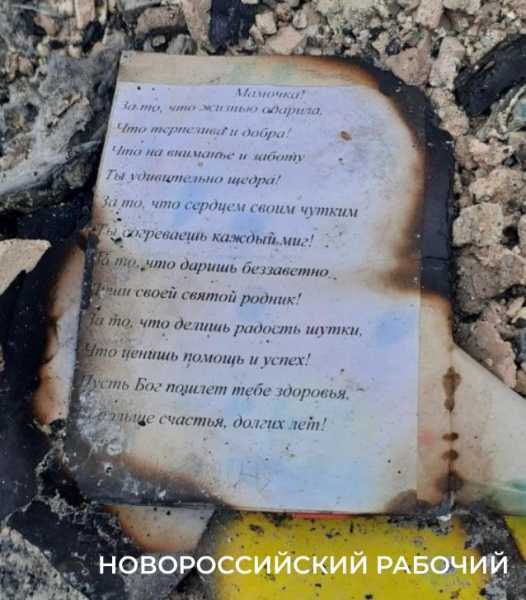 Мамочка!
За то, что жизнью одарила,
Что терпелива и добра!
Что на вниманье и заботу
Ты удивительно щедра!
За то, что сердцем своим чутким
Ты согреваешь каждый миг!
За то, что даришь беззаветно
своей святой родник!
За то, что делишь радость шутки,
Что ценишь помощь и успех!
Пусть Бог пошлет тебе здоровья,
счастья, долгих лет!
НОВОРОССИЙСКИЙ РАБОЧИЙ